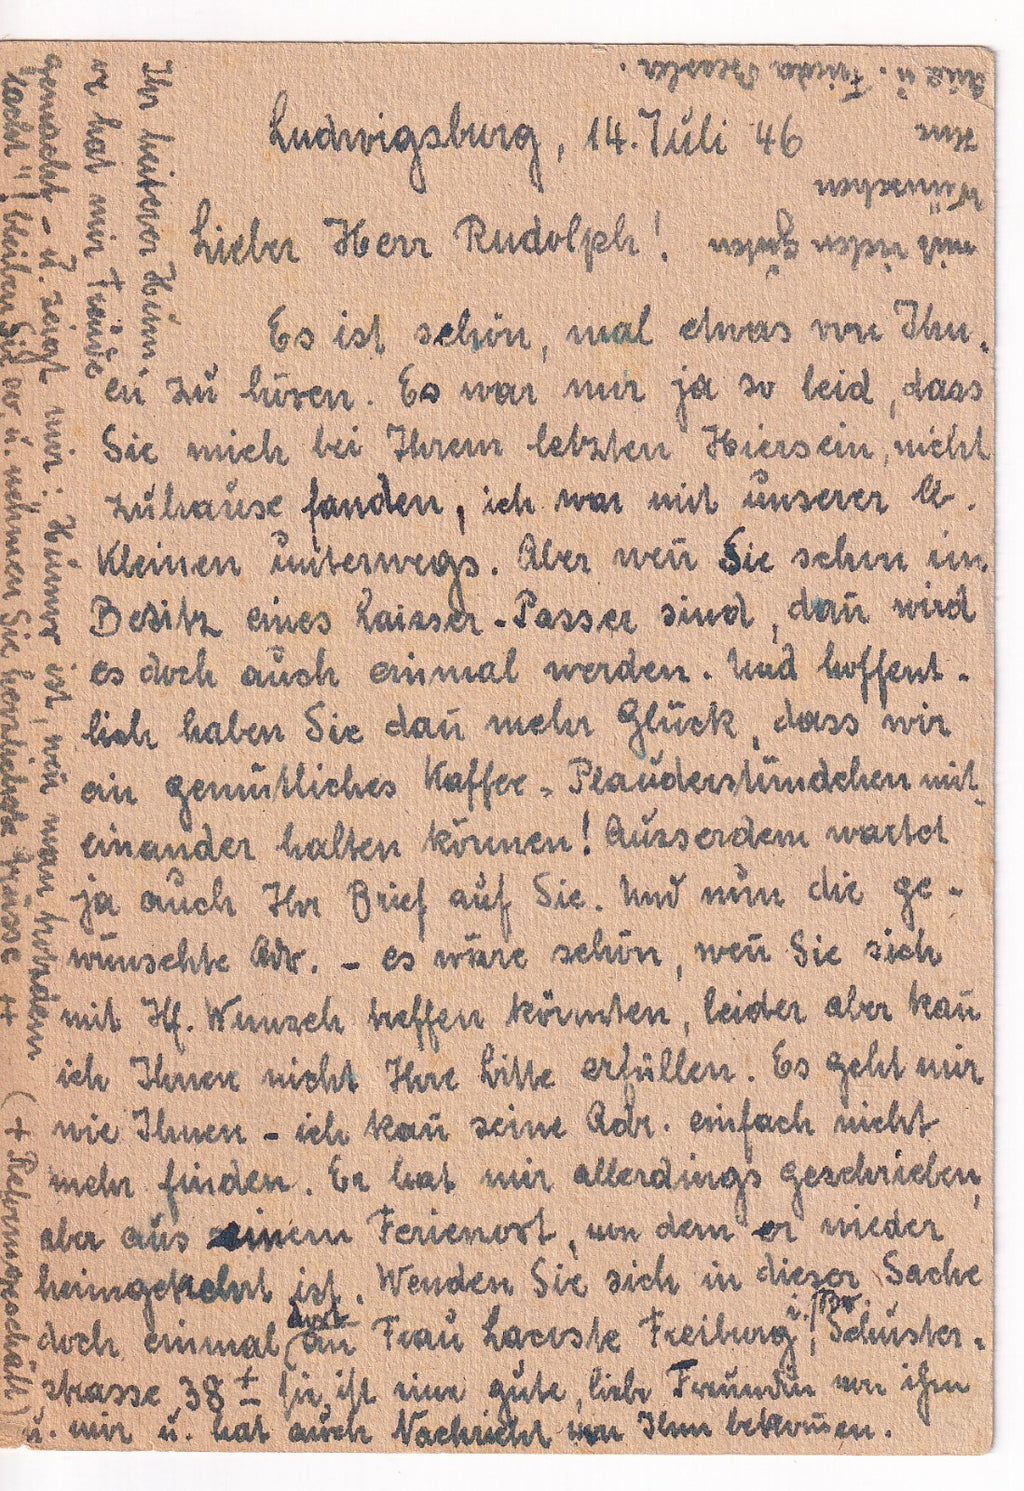 Ludwigsburg, 14. Juli 46
Lieber Herr Rudolph!
Es ist schön, mal etwas von Ihn-
en zu hören. Es war mir ja so leid, dass
Sie mich bei Ihrem letzten Hiersein, nicht
zuhause fanden, ich war mit unserer lb.
Kleinen unterwegs. Aber weñ Sie schon im
Besitz eines Laisser-Passer sind, dañ wird
es doch auch einmal werden. Und hoffent-
lich haben Sie dañ mehr Glück, dass wir
ein gemütliches Kaffee-Plauderstündchen mit-
einander halten können! Ausserdem wartet
ja auch Ihr Brief auf Sie. Und nun die ge-
wünschte Adr. - es wäre schön, weñ Sie sich
mit Hf. Wunsch treffen könnten, leider aber kañ
ich Ihnen nicht Ihre Bitte erfüllen. Es geht mir
wie Ihnen - ich kañ seine Adr. einfach nicht
mehr finden. Er hat mir allerdings geschrieben,
aber aus einem Ferienort, von dem er wieder
heimgekehrt ist. Wenden Sie sich in dieser Sache
doch einmal dort an Frau Lacoste Freiburg i./Br., Schuster-
strasse 38 + sie ist eine gute, liebe Freundin von ihm
u. mir u. hat auch Nachricht von Ihm bekom̃en.
(+ Reformgeschäft)
Ihr heiterer Humor
er hat mir Freude
gemacht - u. zeigt mir: Humor ist, weñ man trotzdem
lacht"! bleiben Sie so u. nehmen Sie herzlichste Grüsse
mit vielen guten
Wünschen
Ihre
u. Frieda